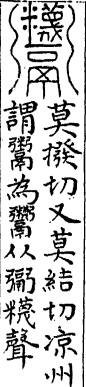 𩱷
莫撥切又莫結切凉州
謂鬻為𩱷从䰜𥻦聲